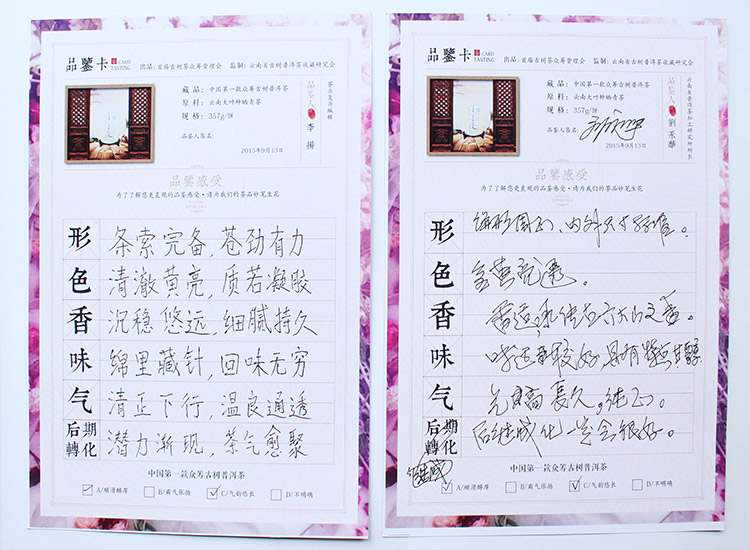 品鑒卡
CARD
TASTING
出品:首届古树茶众筹管理会 监制:云南省古树普洱茶收藏研究会
藏品:中国第一款众筹古树普洱茶
原料:云南大叶种晒青茶
规格:357g/饼
品鉴人签名:
2015年9月13日
品鉴人
李扬
茶业复兴编辑
品鉴感受
为了了解您更直观的品鉴感受·请为我们的茶品妙笔生花
形 条索完备,苍劲有力
色 清澈黄亮,质若凝胶
香 沉稳悠远,细腻持久
味 绵里藏针,回味无穷
气 清正下行,温良通透
后期轉化 潜力渐现,茶气愈聚
中国第一款众筹古树普洱茶
A/顺滑醇厚 B/霸气张扬 C/气韵悠长 D/不明确
品鑒卡
CARD
TASTING
出品:首届古树茶众筹管理会 监制:云南省古树普洱茶收藏研究会
藏品:中国第一款众筹古树普洱茶
原料:云南大叶种晒青茶
规格:357g/饼
品鉴人签名:
2015年9月13日
品鉴人
云南省普洱茶加工研究所所长
品鉴感受
为了了解您更直观的品鉴感受·请为我们的茶品妙笔生花
形 饼形周正、内外
色 金黄亮透。
香
味
气 长久。纯正。
后期轉化 后继成化一定会很好。
中国第一款众筹古树普洱茶
A/顺滑醇厚 B/霸气张扬 C/气韵悠长 D/不明确